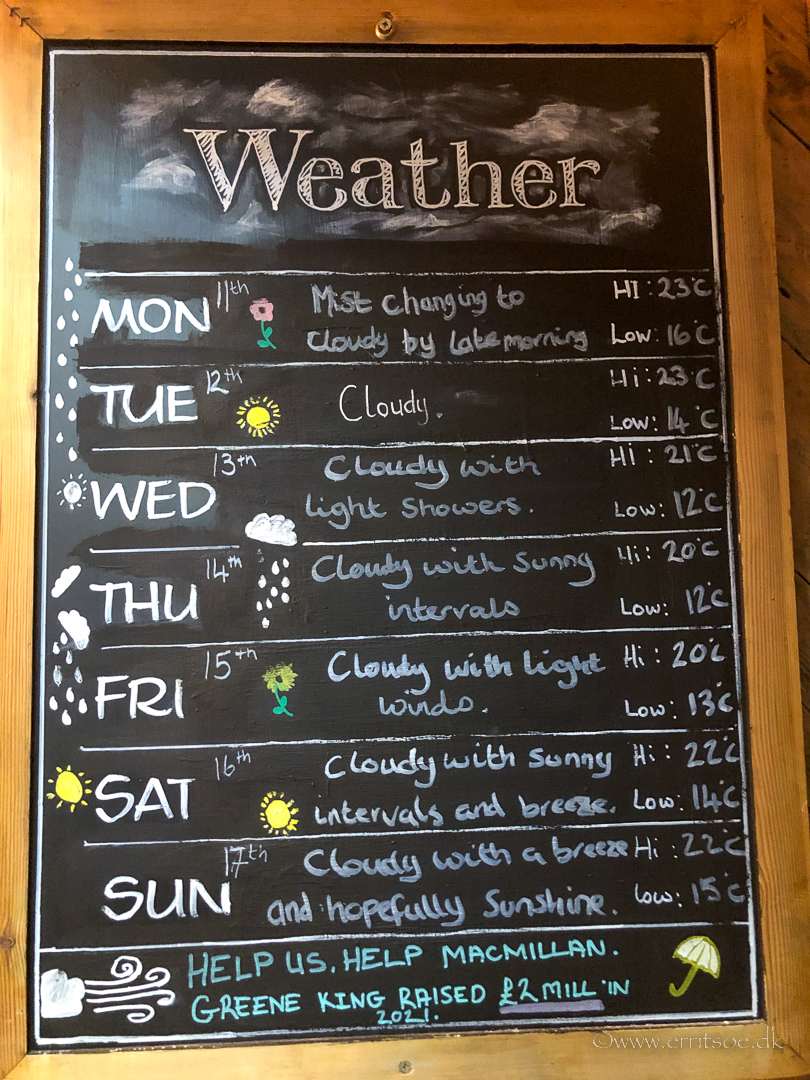 Weather
MON 11th Mist changing to HI: 23°C
cloudy by late morning Low: 16°C
TUE 12th Cloudy. Hi: 23°C
Low: 14°C
WED 13th Cloudy with HI: 21°C
light showers. Low: 12°C
THU 14th Cloudy with Sunny Hi: 20°C
intervals Low: 12°C
FRI 15th Cloudy with light Hi: 20°C
winds. Low: 13°C
SAT 16th Cloudy with Sunny Hi: 22°C
intervals and breeze. Low: 14°C
SUN 17th Cloudy with a breeze Hi: 22°C
and hopefully Sunshine. Low: 15°C
HELP US, HELP MACMILLAN.
GREENE KING RAISED £2 MILL IN
2021.
©www.erritsoe.dk